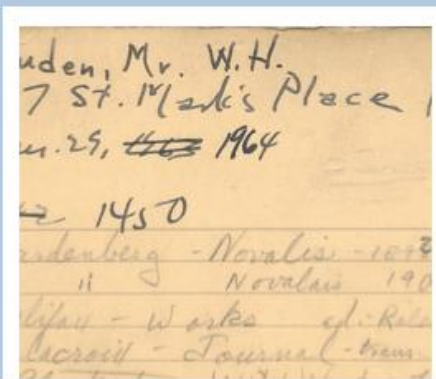 uden, Mr. W.H.
7 St. Mark's Place
29, 1964
1450
rdenberg - Novalis -
" Novalais 190
lifax - Works ed: Rola
lacroix - Journal - trans